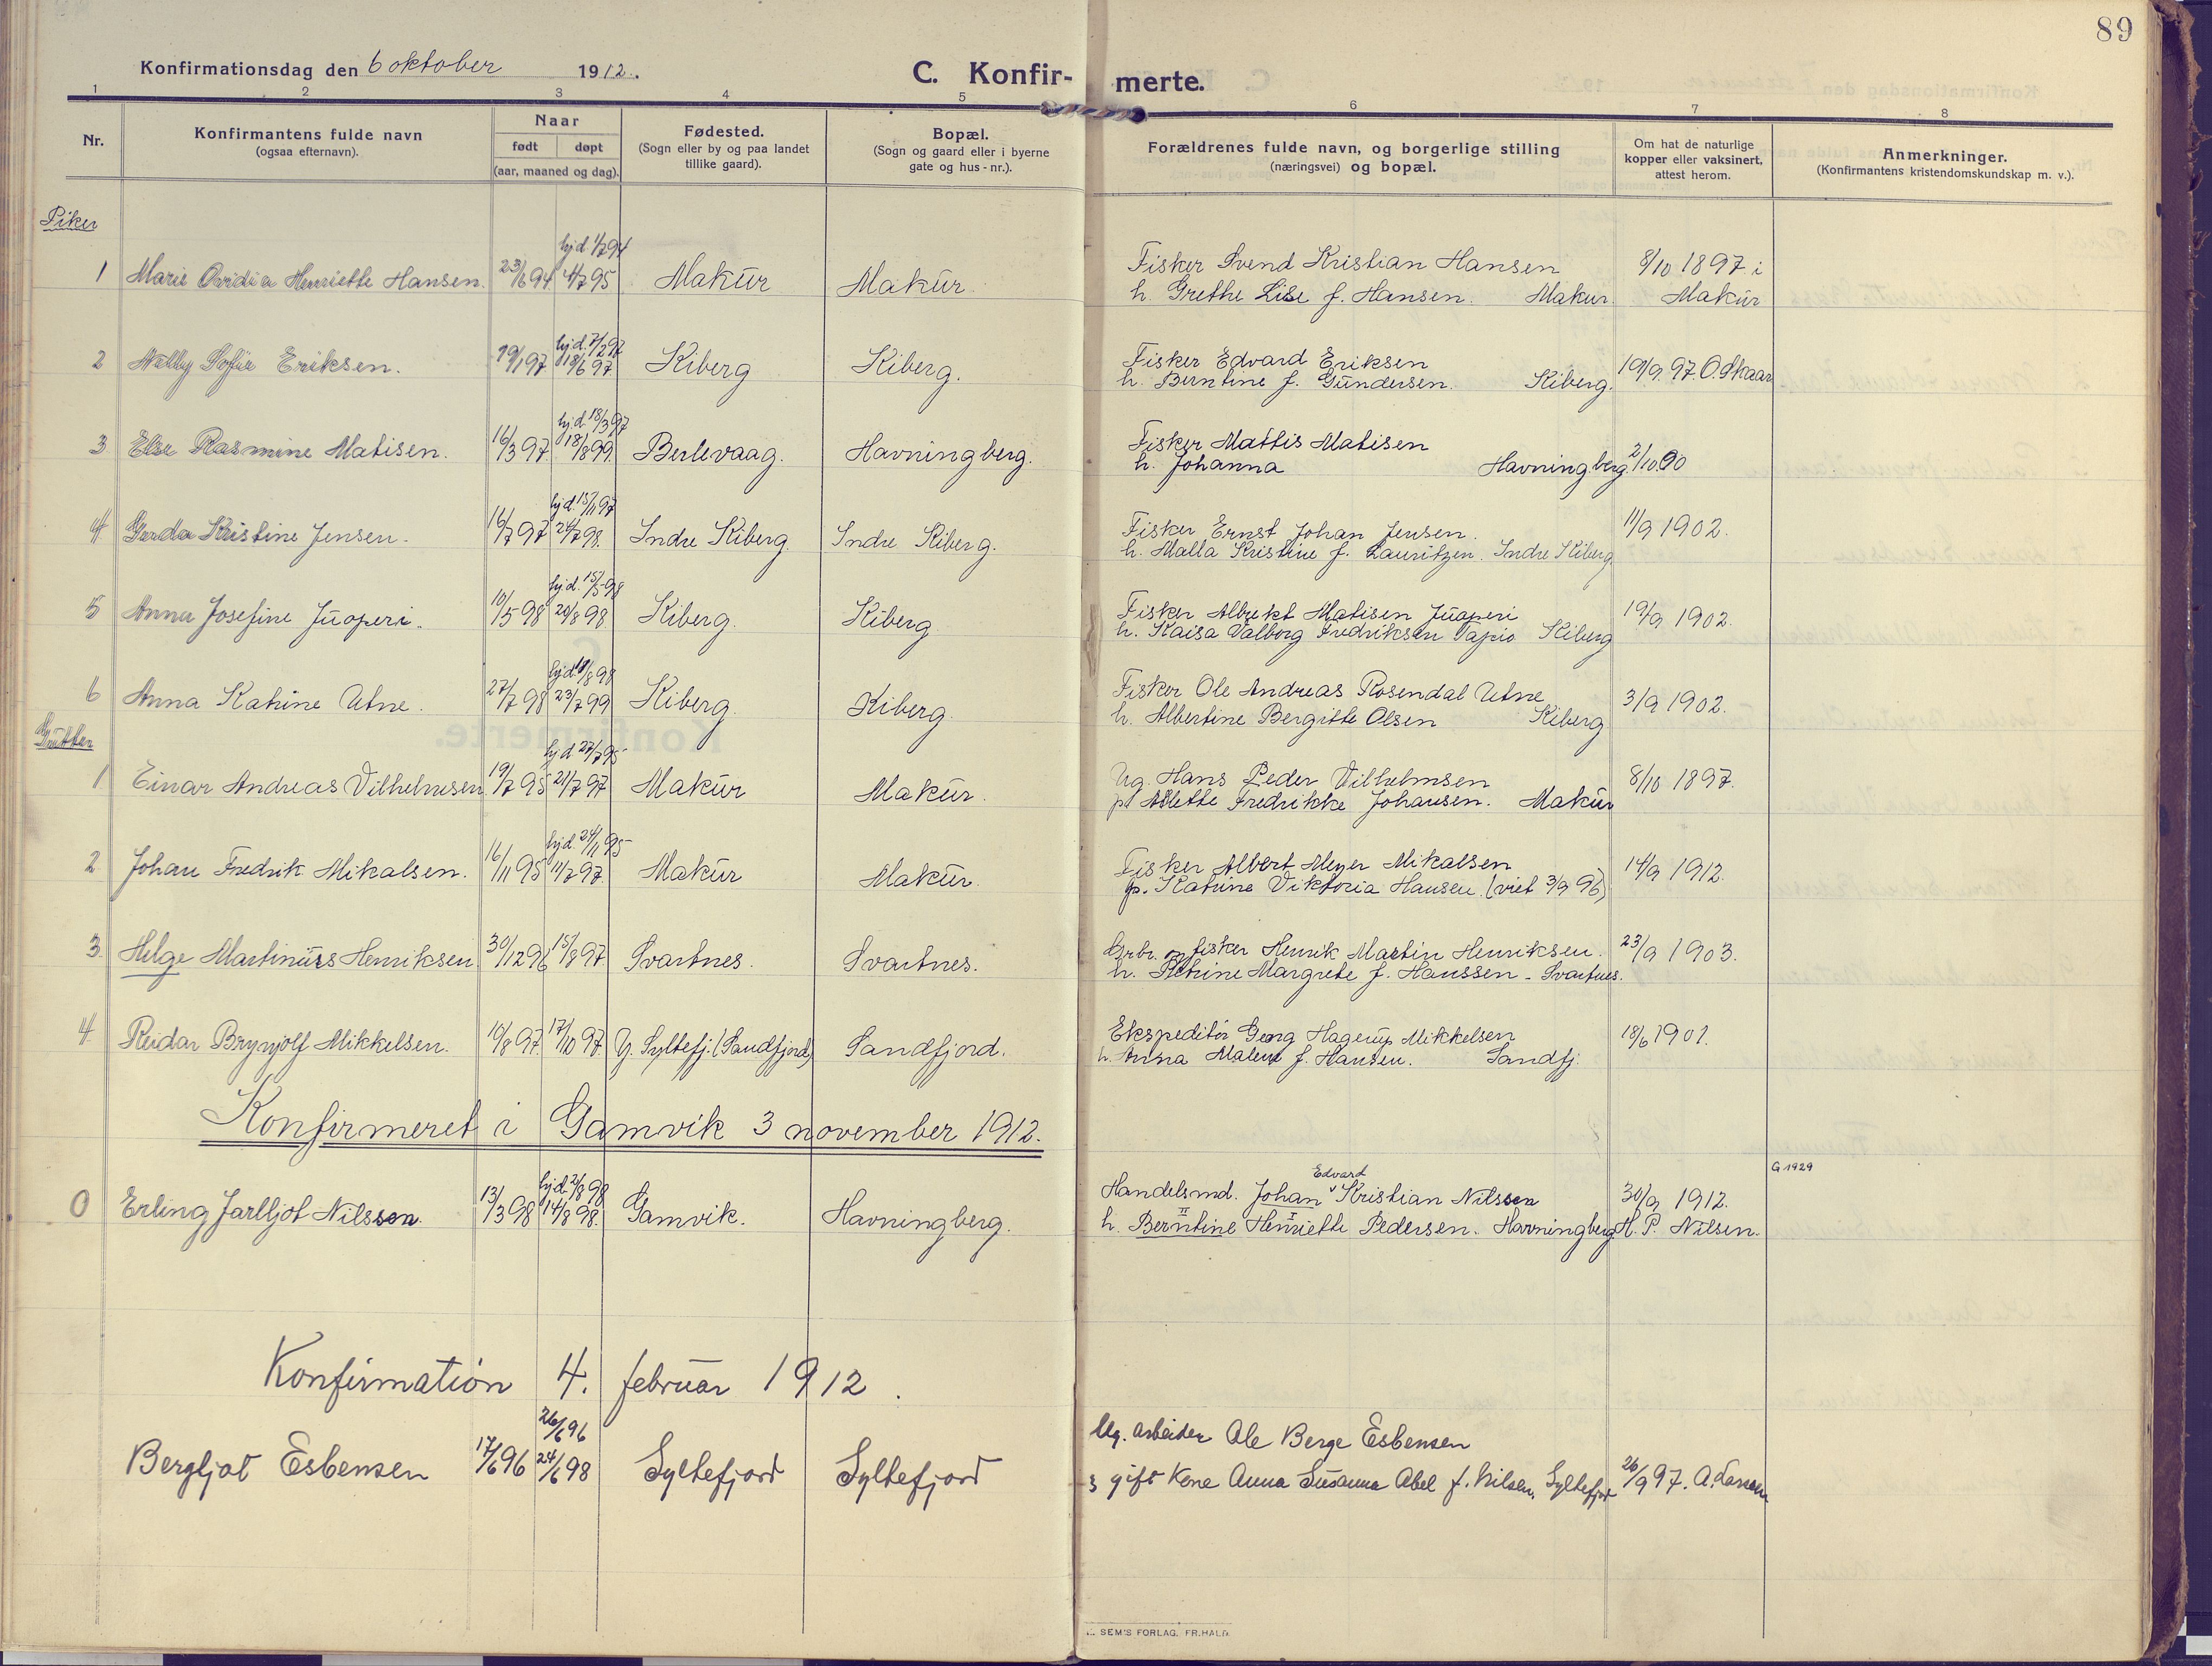 89
Konfirmationsdag den 6 oktober 1912.
C. Konfir- merte.
1 2 3 4 5 6 7 8
Nr.
Konfirmantens fulde navn
(ogsaa efternavn).
Naar
født døpt
(aar, maaned og dag).
Fødested.
(Sogn eller by og paa landet
tillike gaard).
Bopæl.
(Sogn og gaard eller i byerne
gate og hus-nr.).
Forældrenes fulde navn, og borgerlige stilling
(næringsvei) og bopæl.
Om hat de naturlige
kopper eller vaksinert,
attest herom.
Anmerkninger.
(Konfirmantens kristendomskundskap m. v.).
Piker
hjd 1/7 94
1 Marie Ovidia Henriette Hansen. 23/6 94 4/7 95 Makur Makur. Fisker Svend Kristian Hansen 8/10 1897 i
h. Grethe Lise f. Hansen. Makur. Makur
hjd. 7/2 97
2 Nelly Sofie Eriksen. 19/1 97 18/6 97. Kiberg Kiberg. Fisker Edvard Eriksen 19/9 97. O. Skaar
h. Berntine f. Gundersen. Kiberg.
hjd. 18/3 97
3 Else Rasmine Matisen. 16/3 97. 18/8 99. Berlevaag. Havningberg. Fisker Mattis Matisen 2/10 00
h. Johanna Havningberg.
hjd. 15/11 97
4 Gerda Kristine Jensen. 16/7 97 24/7 98. Indre Kiberg. Indre Kiberg. Fisker Ernst Johan Jensen. 11/9 1902.
h. Malla Kristine f. Lauritzen. Indre Kiberg
hjd. 15/5 98
5 Anna Josefine Juoperi. 10/5 98 20/8 98. Kiberg. Kiberg Fisker Albrekt Matisen Juoperi 19/9 1902.
h. Kaisa Valborg Fredriksen Tapio Kiberg
hjd 18/8 98
6 Anna Katrine Utne. 27/7 98 23/7 99 Kiberg. Kiberg. Fisker Ole Andreas Rosendal Utne 3/9 1902.
h. Albertine Bergitte Olsen Kiberg
Gutter
hjd 27/7 95
1 Einar Andreas Vilhelmsen 19/7 95 21/7 97 Makur Makur. Ug. Hans Peder Vilhelmsen 8/10 1897.
p. Adlette Fredrikke Johansen. Makur
hjd. 24/11 95
2 Johan Fredrik Mikalsen. 16/11 95 11/7 97. Makur Makur. Fisker Albert Meyer Mikalsen 14/9 1912.
p. Katrine Viktoria Hansen. (viet 3/9 96)
3. Helge Martinius Henriksen 30/12 96 15/8 97. Svartnes. Svartnes. Grbr. og fisker Henrik Martin Henriksen. 23/9 1903.
h. Petrine Margrete f. Hanssen - Svartnes.
4. Reidar Brynjolf Mikkelsen. 10/8 97. 17/10 97. Y. Syltefj. (Sandfjord) Sandfjord. Ekspeditør Georg Hagerup Mikkelsen 18/6 1901.
h. Anna Malene f. Hansen. Sandfj.
Konfirmeret i Gamvik 3 november 1912.
G 1929
hjd. 2/8 98 Edvard
0 Erling Jarlljot Nilssen. 13/3 98 14/8 98. Gamvik. Havningberg. Handelsmd. Johan ᵛ Kristian Nilssen 30/9 1912.
II I
h. Berntine Henriette Pedersen. Havningberg H. P. Nilsen.
Konfirmation 4. februar 1912.
26/6 96
Bergljot Esbensen 17/6 96 24/6 98 Syltefjord Syltefjord Ug. arbeider Ole Berge Esbensen
gift Kone Anna Susanna Abel f. Nilsen, Syltefjord 26/9 97. A. Larssen
SEM'S FORLAG, FR.HALD.